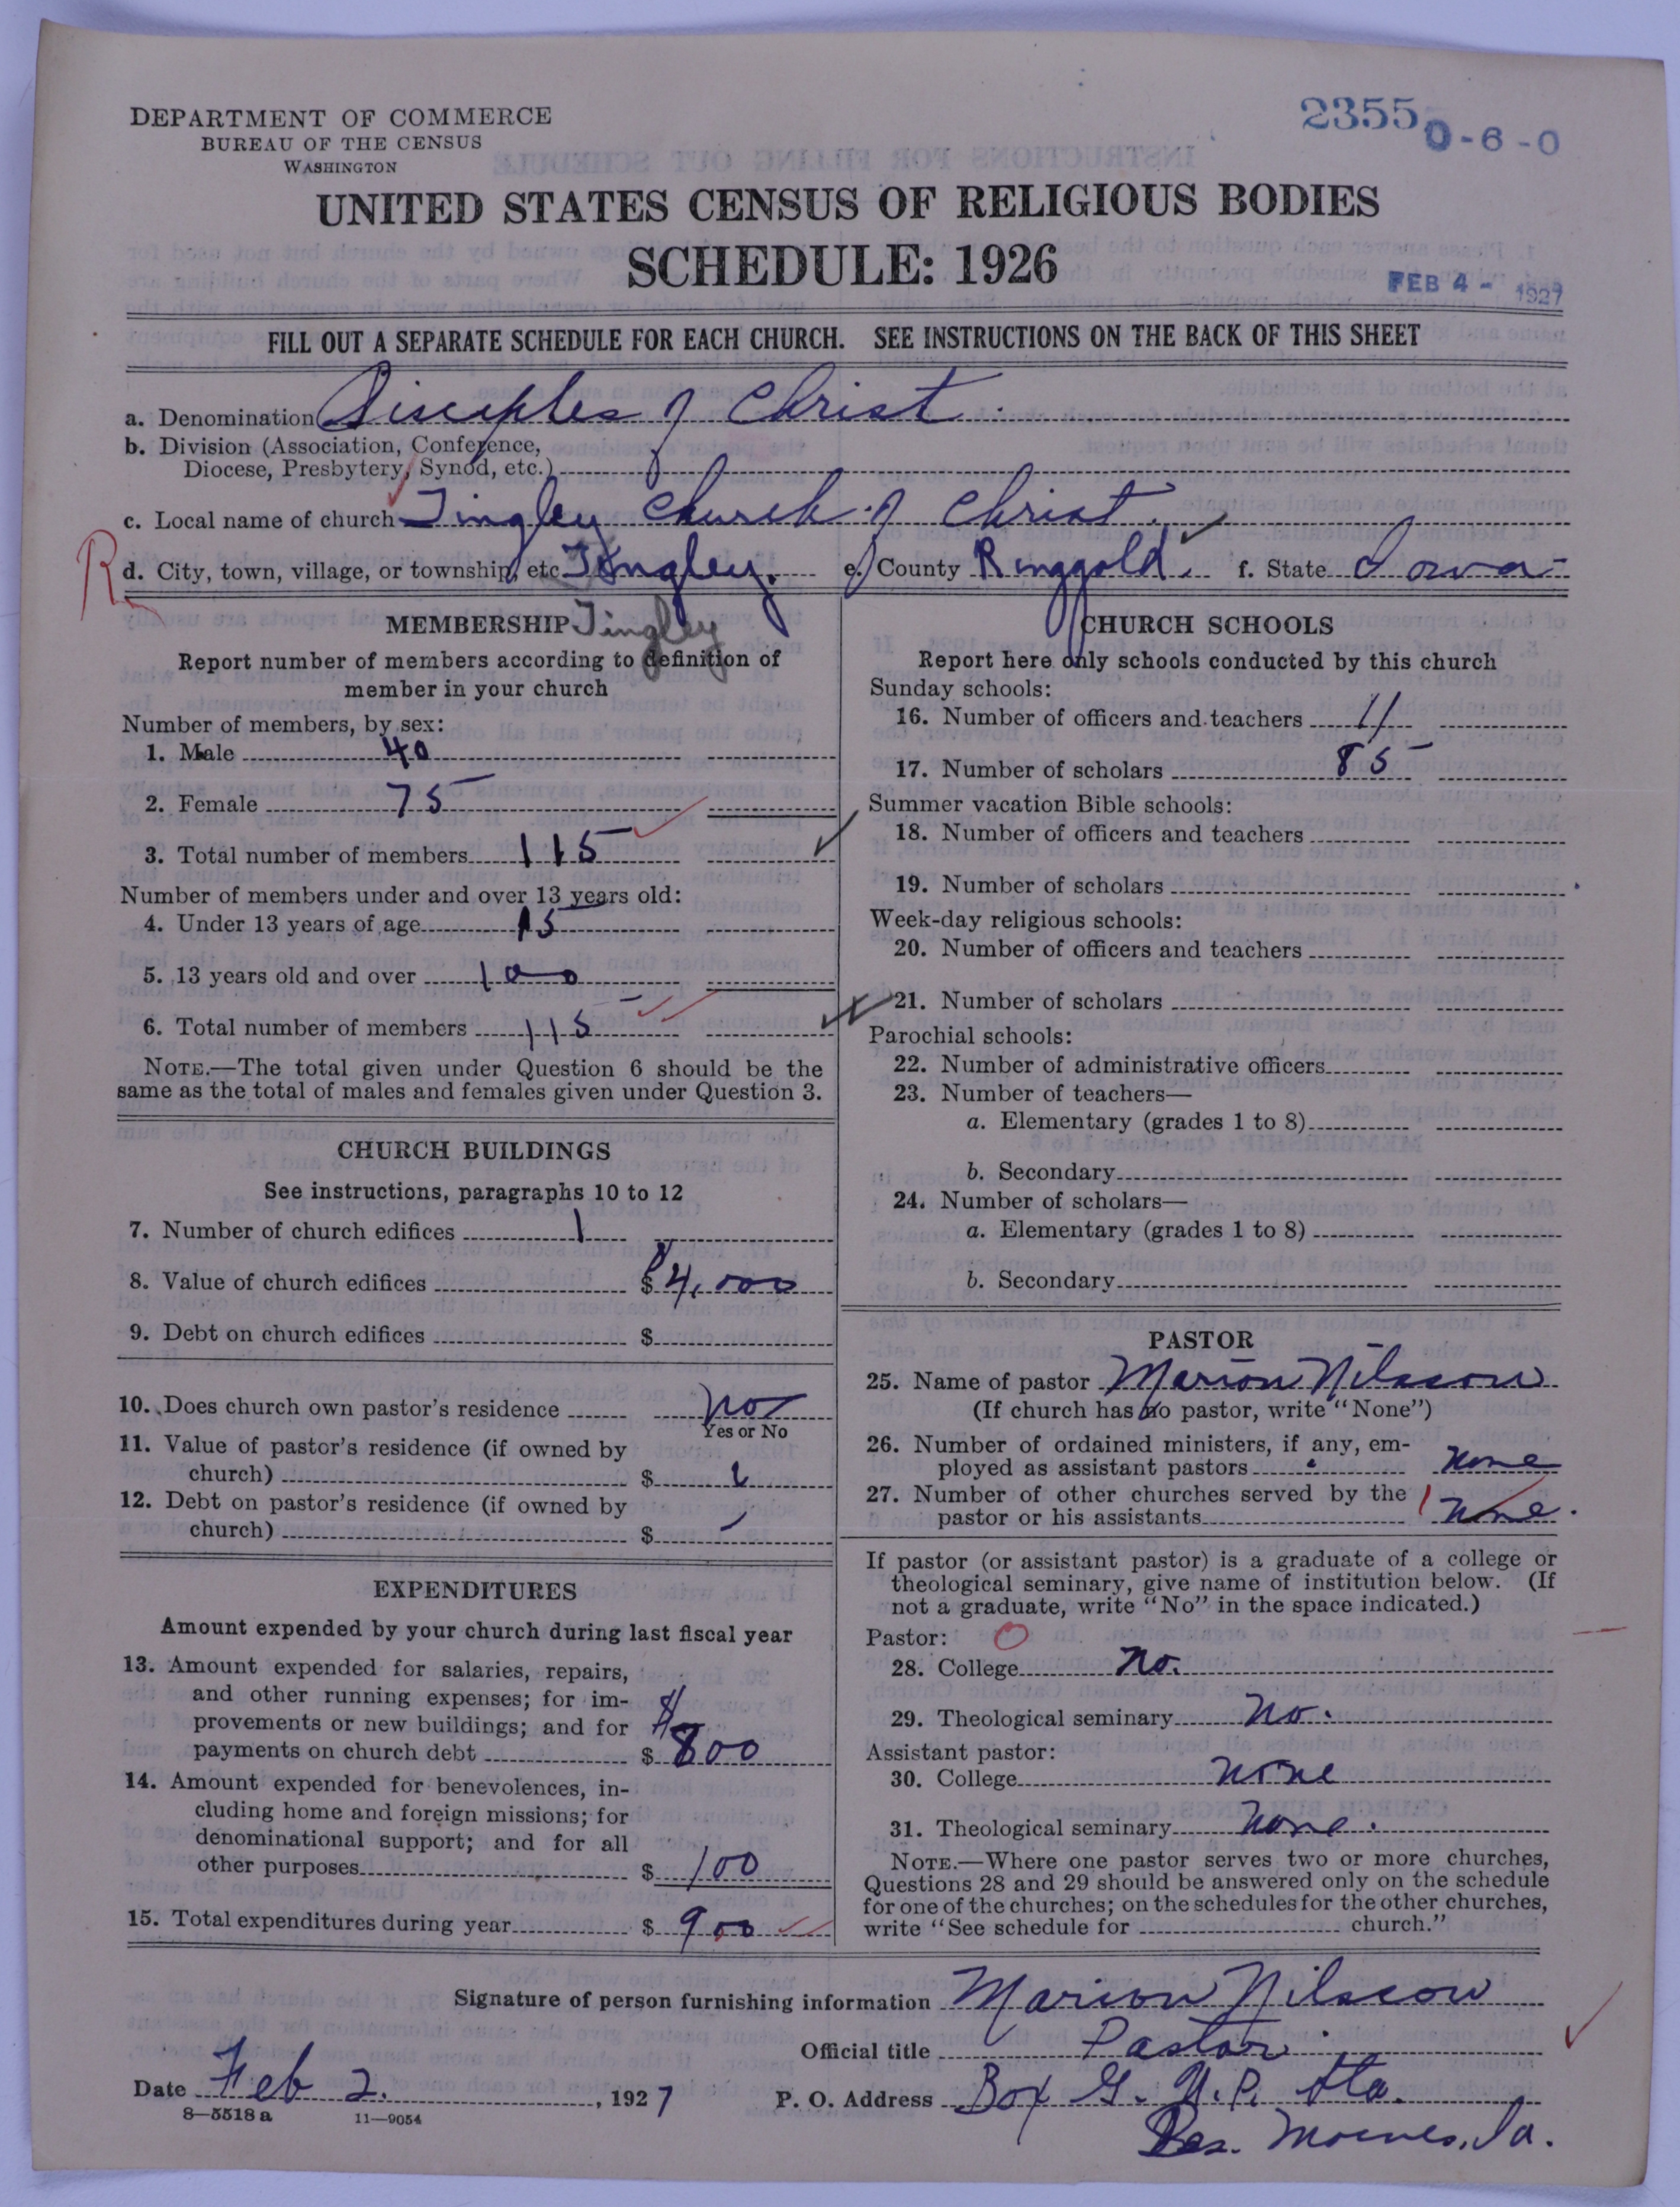 DEPARTMENT OF COMMERCE
BUREAU OF THE CENSUS
WASHINGTON
2355 0-6-0
UNITED STATES CENSUS OF RELIGIOUS BODIES
SCHEDULE: 1926
FEB 4 - 1927
FILL OUT A SEPARATE SCHEDULE FOR EACH CHURCH. SEE INSTRUCTIONS ON THE BACK OF THIS SHEET
a. Denomination Disciples of Christ
b. Division (Association, Conference,
Diocese, Presbytery, Synod, etc.)
c. Local name of church Tingley Church of Christ
R d. City, town, village, or township, etc Tingley. e. County Ringgold. f. State Iowa
MEMBERSHIP Tingley
Report number of members according to definition of
member in your church
Number of members, by sex:
1. Male 40
2. Female 75
3. Total number of members 115
Number of members under and over 13 years old:
4. Under 13 years of age 15
5. 13 years old and over 100
6. Total number of members 115
NOTE.—The total given under Question 6 should be the
same as the total of males and females given under Question 3.
CHURCH BUILDINGS
See instructions, paragraphs 10 to 12
7. Number of church edifices 1
8. Value of church edifices $ 4,000
9. Debt on church edifices $
10. Does church own pastor's residence no
Yes or No
11. Value of pastor's residence (if owned by
church) $
12. Debt on pastor's residence (if owned by
church) $
EXPENDITURES
Amount expended by your church during last fiscal year
13. Amount expended for salaries, repairs,
and other running expenses; for im-
provements or new buildings; and for
payments on church debt $ $800
14. Amount expended for benevolences, in-
cluding home and foreign missions; for
denominational support; and for all
other purposes $ 100
15. Total expenditures during year $ 900
CHURCH SCHOOLS
Report here only schools conducted by this church
Sunday schools:
16. Number of officers and teachers 11
17. Number of scholars 85
Summer vacation Bible schools:
18. Number of officers and teachers
19. Number of scholars
Week-day religious schools:
20. Number of officers and teachers
21. Number of scholars
Parochial schools:
22. Number of administrative officers
23. Number of teachers—
a. Elementary (grades 1 to 8)
b. Secondary
24. Number of scholars—
a. Elementary (grades 1 to 8)
b. Secondary
PASTOR
25. Name of pastor Marion Nilsson
(If church has no pastor, write "None")
26. Number of ordained ministers, if any, em-
ployed as assistant pastors none
27. Number of other churches served by the
pastor or his assistants none.
If pastor (or assistant pastor) is a graduate of a college or
theological seminary, give name of institution below. (If
not a graduate, write "No" in the space indicated.)
Pastor:
28. College no.
29. Theological seminary no.
Assistant pastor:
30. College none
31. Theological seminary none.
NOTE.—Where one pastor serves two or more churches,
Questions 28 and 29 should be answered only on the schedule
for one of the churches; on the schedules for the other churches,
write "See schedule for church."
Signature of person furnishing information Marion Nilsson
Official title Pastor
Date Feb 2. , 1927 P. O. Address Box G. U.P. Sta.
8—5518 a 11—9054 Des. Moines, Ia.